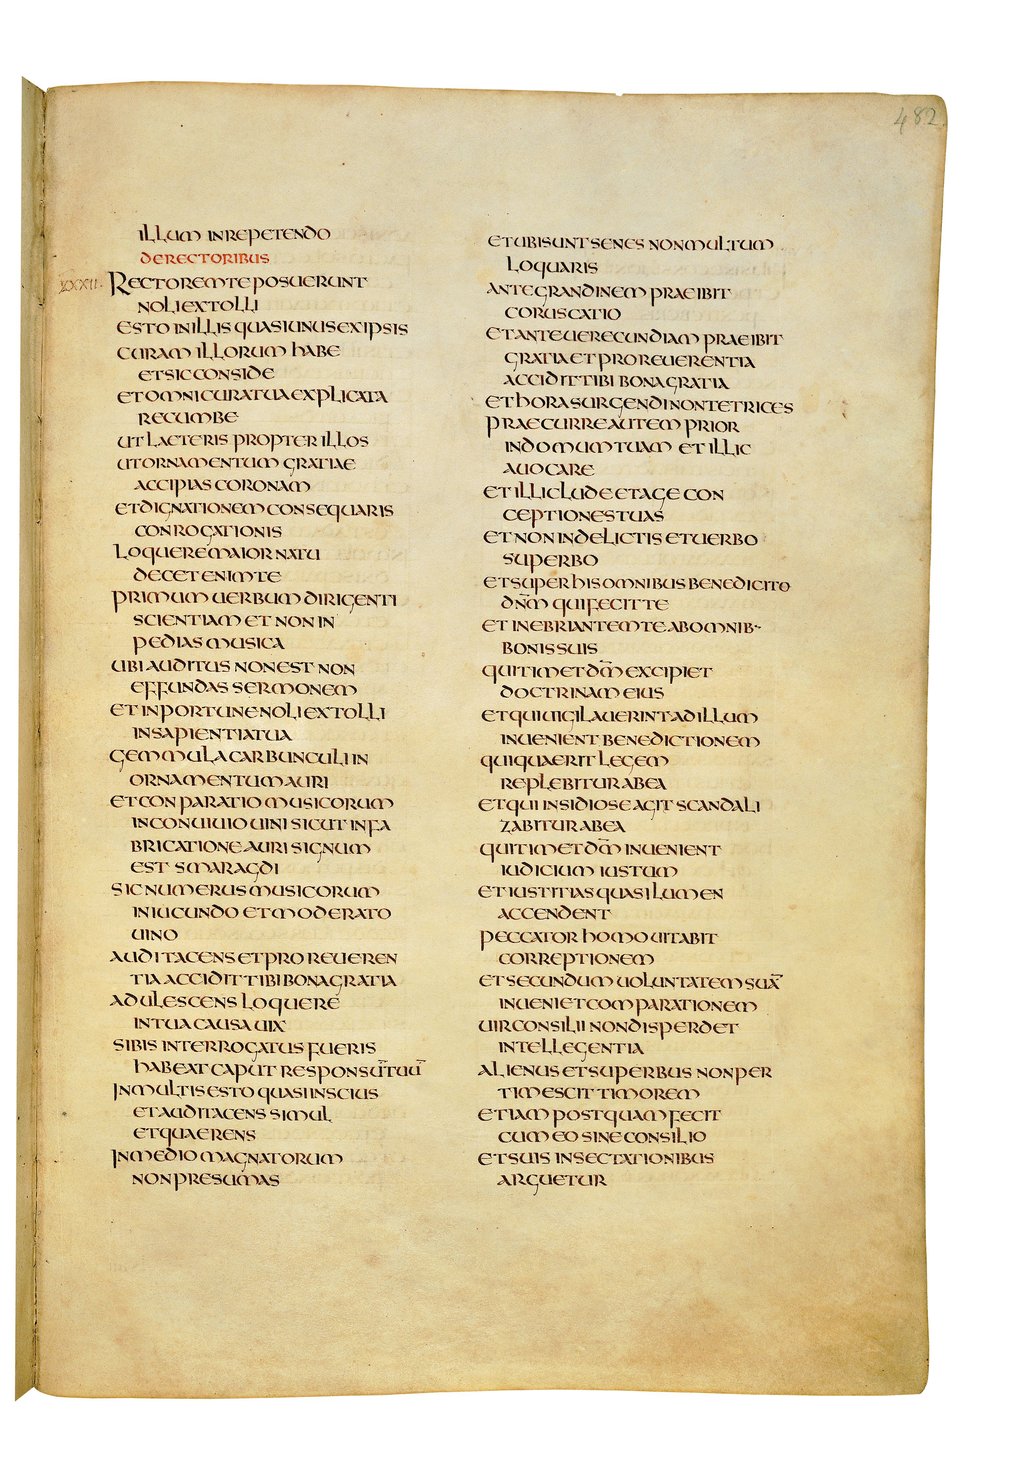 482
illum inrepetendo
derectoribus
xxxii Rectoremte posuerunt
noli extolli
esto inillis quasi unus exipsis
curam illorum habe
et sic conside
et omni cura tua explicata
recumbe
ut lacteris propter illos
ut ornamentum gratiae
accipias coronam
et dignationem consequaris
conrogationis
Loquere maior natu
decet enim te
primum uerbum dirigenti
scientiam et non in
pedias musica
ubi auditus non est non
effundas sermonem
et inportune noli extolli
insapientia tua
gemmula carbunculi in
ornamentum auri
et conparatio musicorum
inconuiuio uini sicut in fa
bricatione auri signum
est smaragdi
sic numerus musicorum
in iucundo et moderato
uino
audi tacens et pro reueren
tia accidit tibi bona gratia
adulescens loquere
in tua causa uix
si bis interrogatus fueris
habeat caput responsū tuū
In multis esto quasi inscius
et audi tacens simul
et quaerens
In medio magnatorum
non presumas
et ubi sunt senes non multum
loquaris
ante grandinem praeibit
coruscatio
et ante uerecundiam praeibit
gratia et pro reuerentia
accidit tibi bona gratia
et hora surgendi non te trices
praecurre autem prior
in domum tuam et illic
auocare
et illic lude et age con
ceptiones tuas
et non in delictis et uerbo
superbo
et super his omnibus benedicito
dn̄m qui fecit te
et inebriantem te ab omnib·
bonis suis
qui timet dm̄ excipiet
doctrinam eius
et qui uigilauerint ad illum
inuenient benedictionem
qui quaerit legem
replebitur ab ea
et qui insidiose agit scandali
zabitur ab ea
qui timet dm̄ inuenient
iudicium iustum
et iustitias quasi lumen
accendent
peccator homo uitabit
correptionem
et secundum uoluntatem suā
inueniet comparationem
uir consilii non disperdet
intellegentia
alienus et superbus non per
timescit timorem
etiam postquam fecit
cum eo sine consilio
et suis insectationibus
arguetur